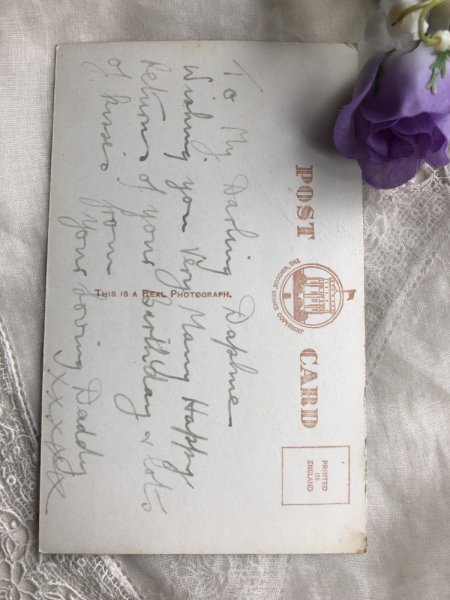 POST CARD
THE WINDSOR SERIES COPYRIGHT
PRINTED
IN
ENGLAND
THIS IS A REAL PHOTOGRAPH.
To My Darling Daphne
Wishing you Very Many Happy
Return of your Birthday & lots
of kisses from
your loving Daddy
xxxxxx